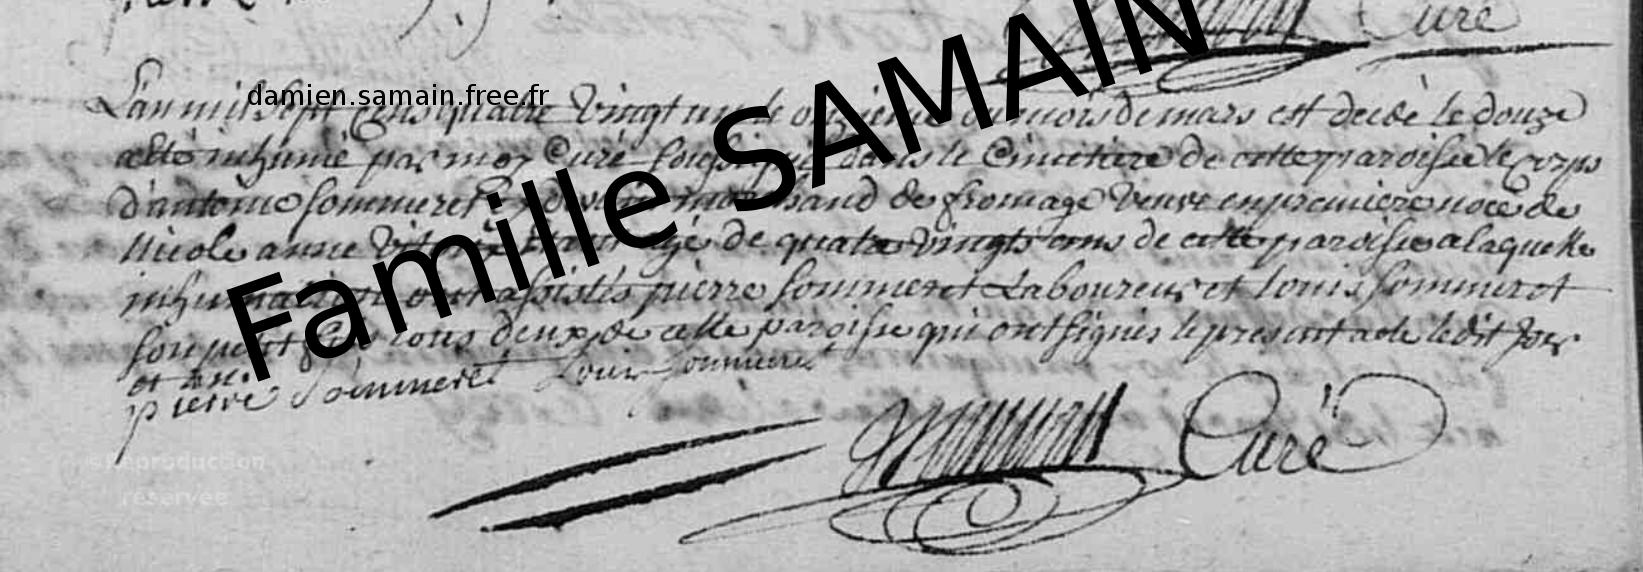 Curé
damien.samain.free.fr
Famille SAMAIN
L'an mil sept cens quatre vingt un le onzieme du mois de mars est decedé le douze
a eté inhumé par moy Curé soussigné dans le Cimetiere de cette paroisse le corps
d'antoine sommeret marchand de fromage veuve en premiere noce de
Nicole anne agé de quatre vingts ans de cette paroisse a laquelle
inhumation ont assistés pierre sommeret Laboureur et louis sommeret
tous deux de cette paroisse qui ont signés le present acte ledit jour
et an.
pierre Sommeret Louis Sommeret
Curé
Reproduction
réservée